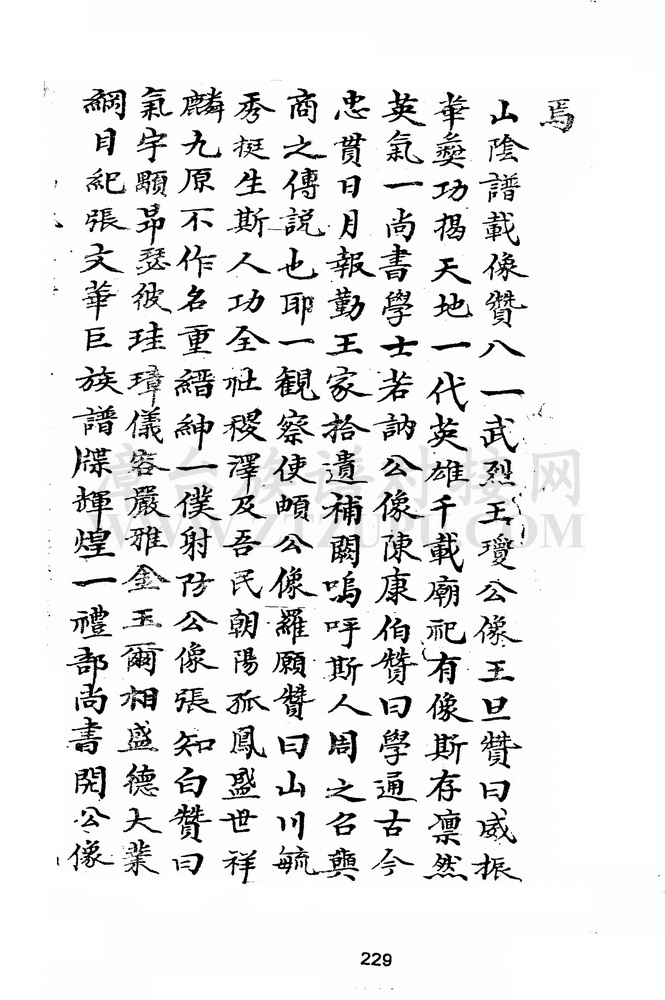 焉
山陰譜載像贊八一武烈王瓊公像王旦贊曰威振
華彝功揭天地一代英雄千載廟祀有像斯存凛然
英氣一尚書學士若訥公像陳康伯贊曰學通古今
忠貫日月報勤王家拾遺補闕嗚呼斯人周之召龔
商之傳説也耶一観察使頔公像羅願贊曰山川毓
秀挺生斯人功全社稷澤及吾民朝陽孤鳳盛世祥
麟九原不作名重縉紳一僕射防公像張知白贊曰
氣宇顒昂瑟彼珪璋儀容嚴雅金玉爾相盛德大業
綱目紀張文華巨族譜牒輝煌一禮部尚書閱公像
漳台族谱对接网
WWW.ZTZUPU.COM
229